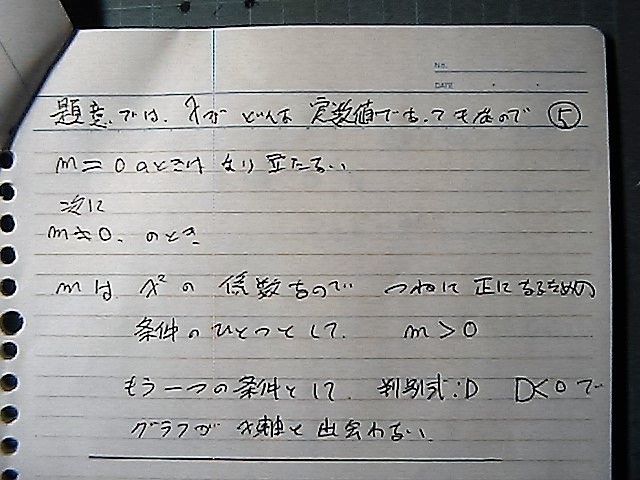 No.
DATE
題意では、xがどんな実数値であってもなので ⑤
m=0のときは なり立たない
次に
m≠0、のとき
mは x²の 係数なので つねに正になるための
条件のひとつとして、 m>0
もう一つの条件として、判別式:D D<0で
グラフが x軸と出会わない